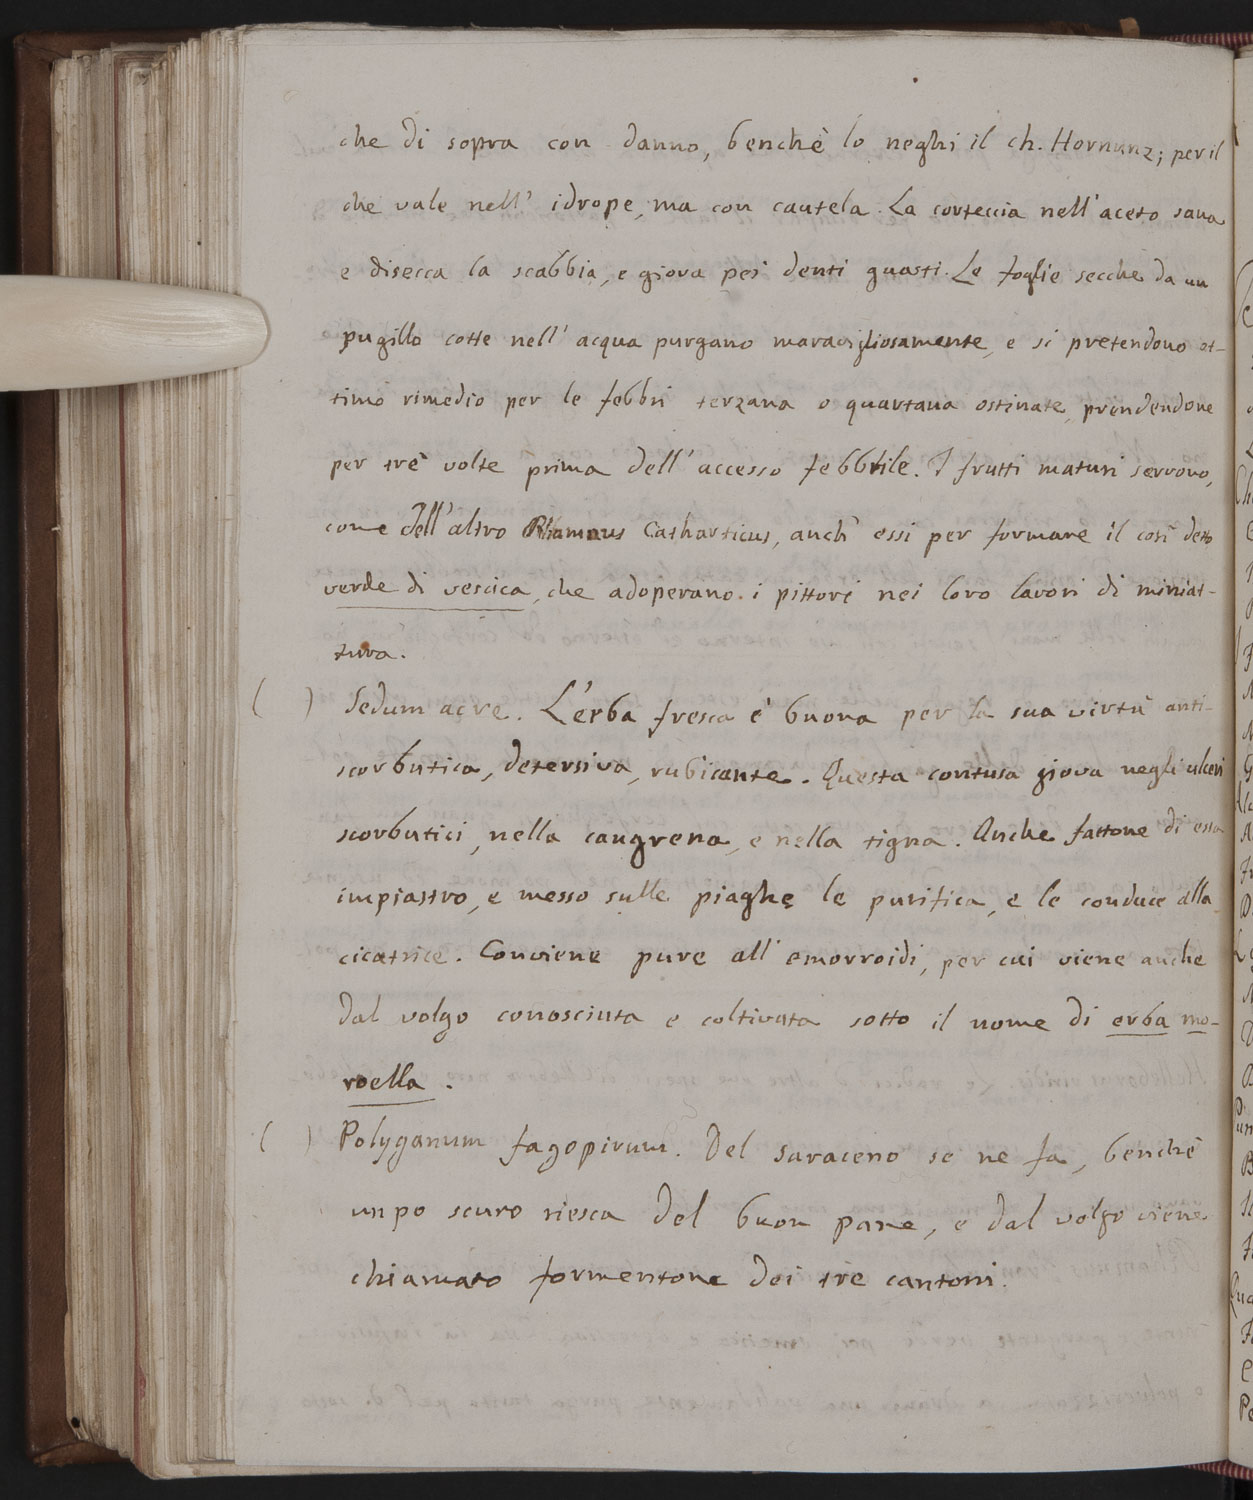 che di sopra con danno, benchè lo neghi il ch. Hornunz; per il
che vale nell' idrope, ma con cautela. La corteccia nell'aceto sana
e disecca la scabbia, e giova pei denti guasti. Le foglie secche da un
pugillo cotte nell' acqua purgano maravigliosamente, e si pretendono ot-
timo rimedio per le febbri terzana o quartana ostinate, prendendone
per trè volte prima dell' accesso febbrile. I frutti maturi servono,
come dell'altro Rhamnus Catharticus, anch' essi per formare il così detto
verde di vescica, che adoperano i pittori nei loro lavori di miniat-
tura.
( ) Sedum acre. L'erba fresca è buona per la sua virtù anti-
scorbutica, detersiva, rubicante. Questa contusa giova negli ulceri
scorbutici, nella cangrena, e nella tigna. Anche fattone di essa
impiastro, e messo sulle piaghe le purifica, e le conduce alla
cicatrice. Conviene pure all' emorroidi, per cui viene anche
dal volgo conosciuta e coltivata sotto il nome di erba mo-
roella.
( ) Polyganum fagopirum. Del saraceno se ne fa, benchè
un po scuro riesca del buon pane, e dal volgo viene
chiamato formentone dei trè cantoni.